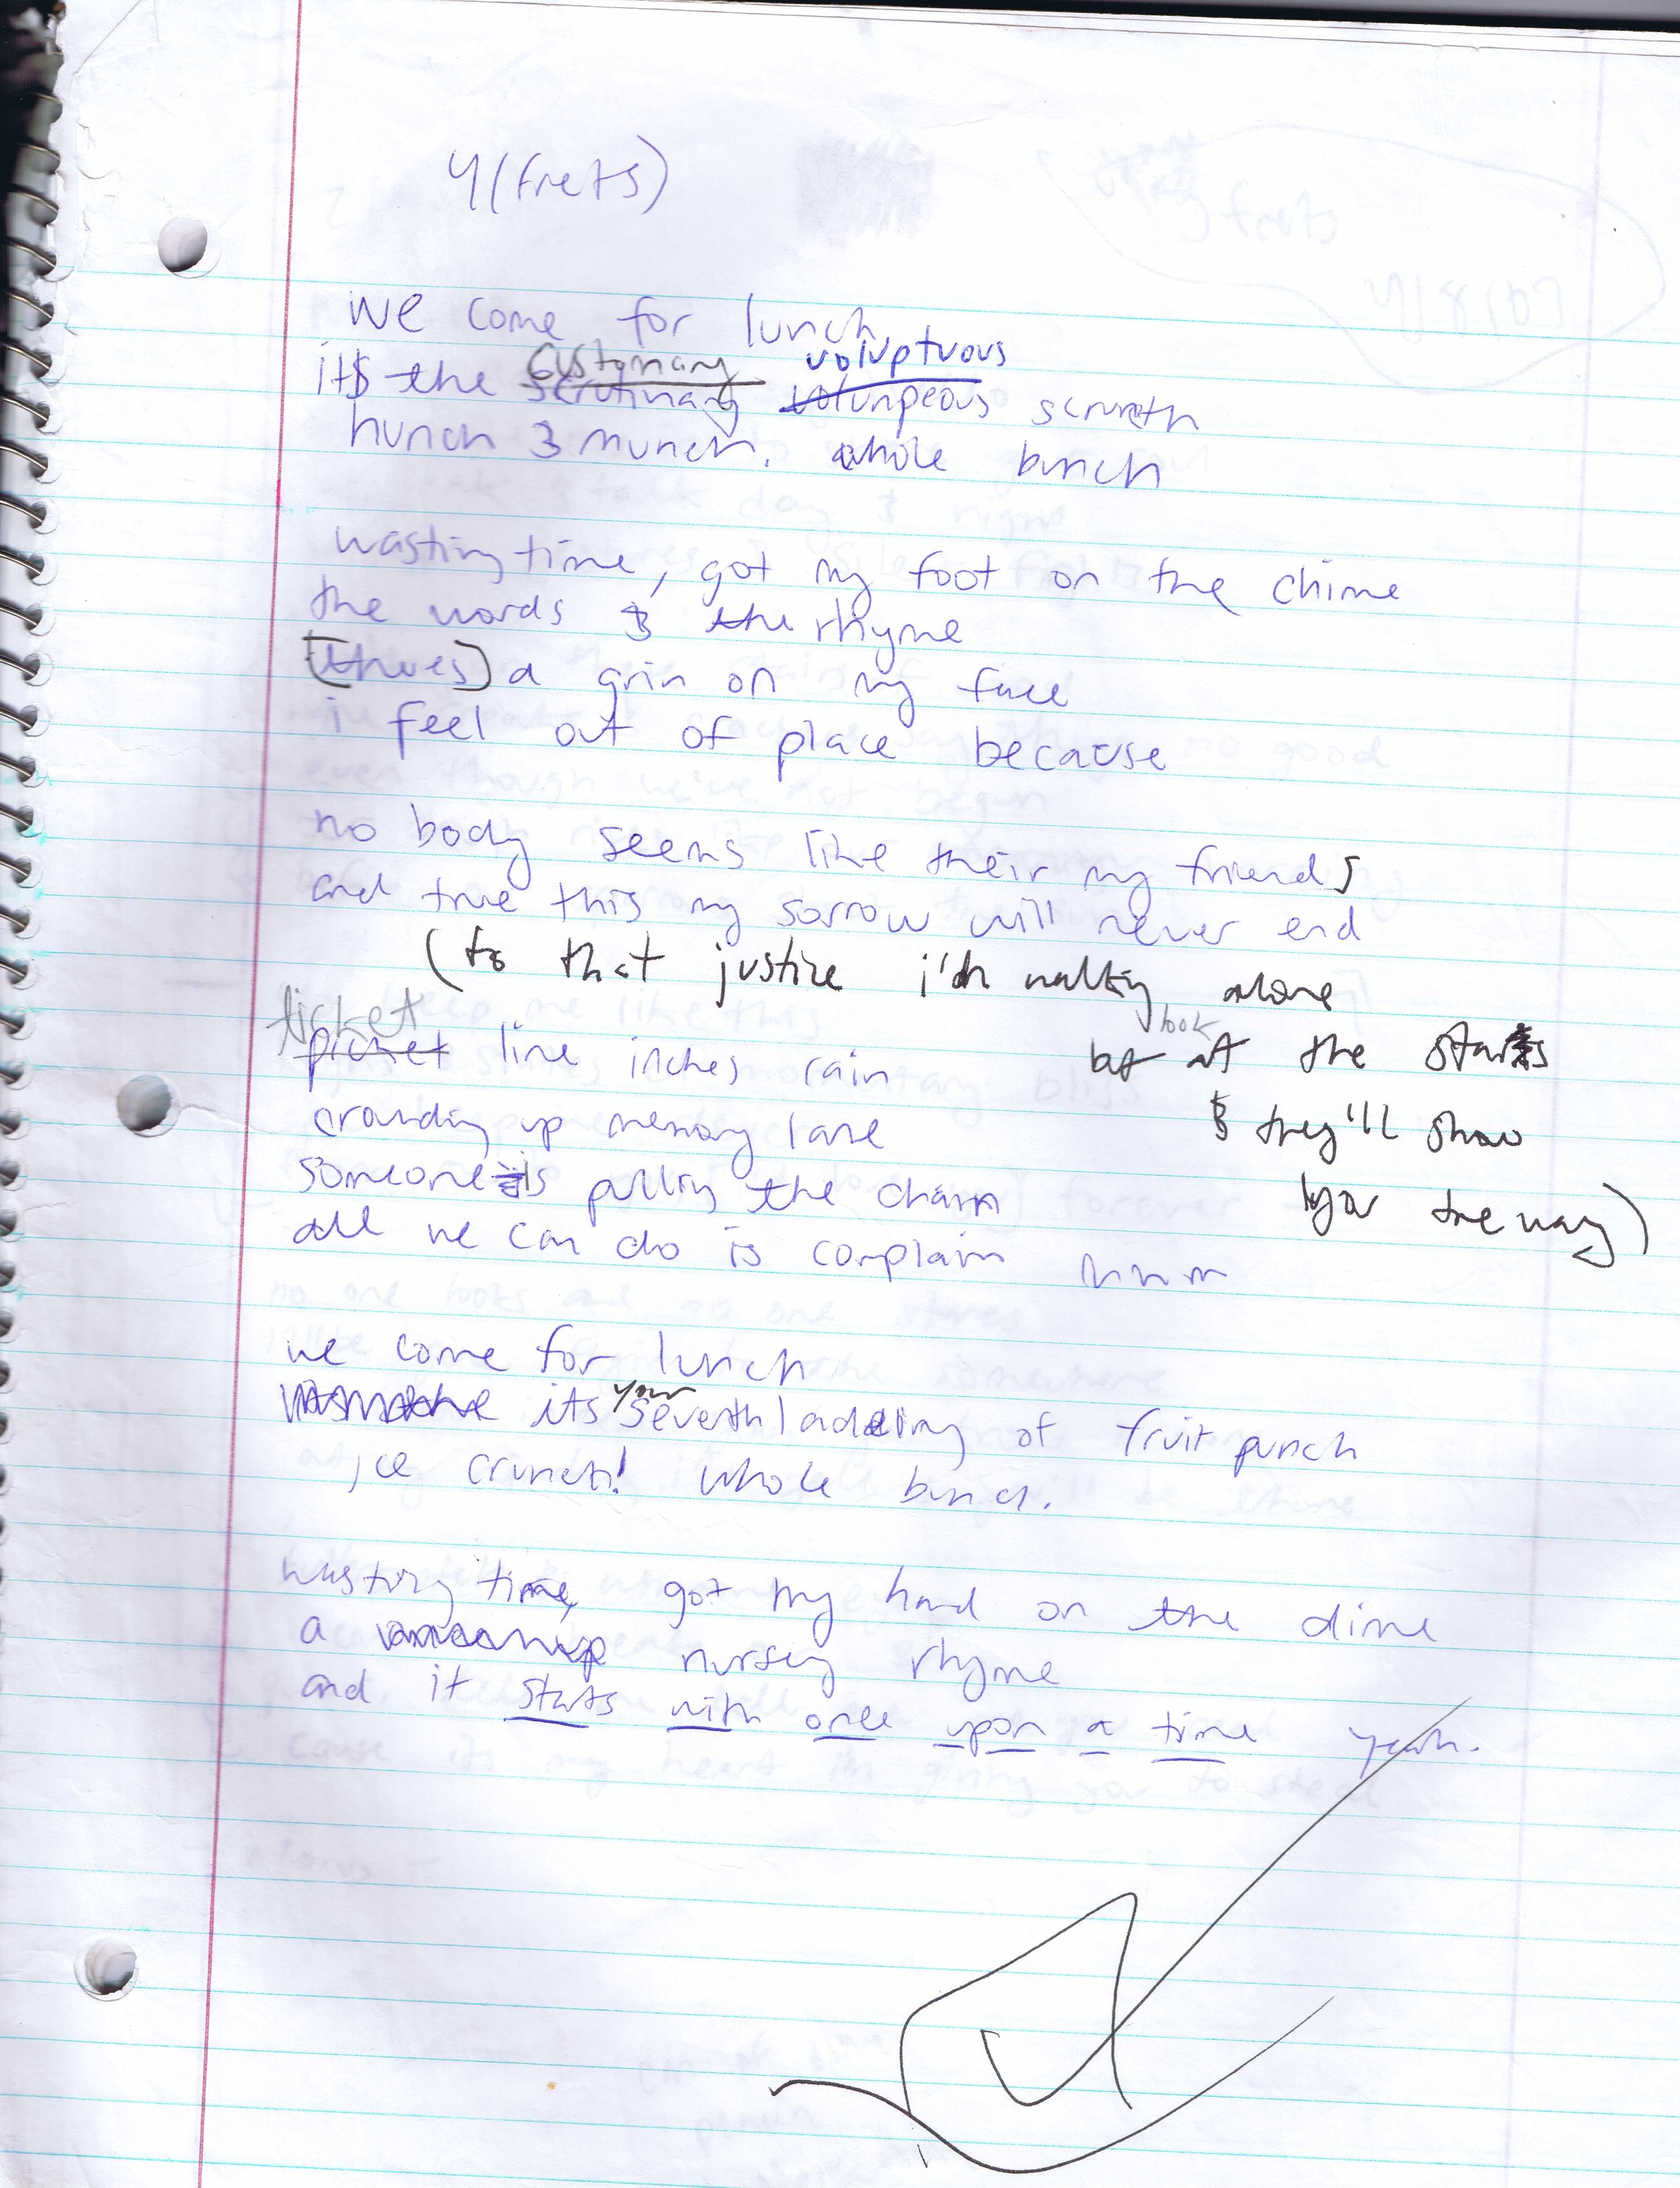 4(frets)
we come for lunch
customary voluptuous
its the scrutinary volumpeous scrunth
hunch & munch. whole bunch
wasting time, got my foot on the chime
the words & the rhyme
(theres) a grin on my face
i feel out of place because
no body seems like their my friends
and true this my sorrow will never end
(to that justice i'm walking alone
look
but at the stars
& they'll show
you the way)
ticket
picket line inches rain
crowding up memory lane
someone is pulling the chain
all we can do is complain
we come for lunch
your
its seventh ladeling of fruit punch
ice crunch! whole bunch.
wasting time, got my hand on the dime
a nursery rhyme
and it starts with once upon a time yeah.